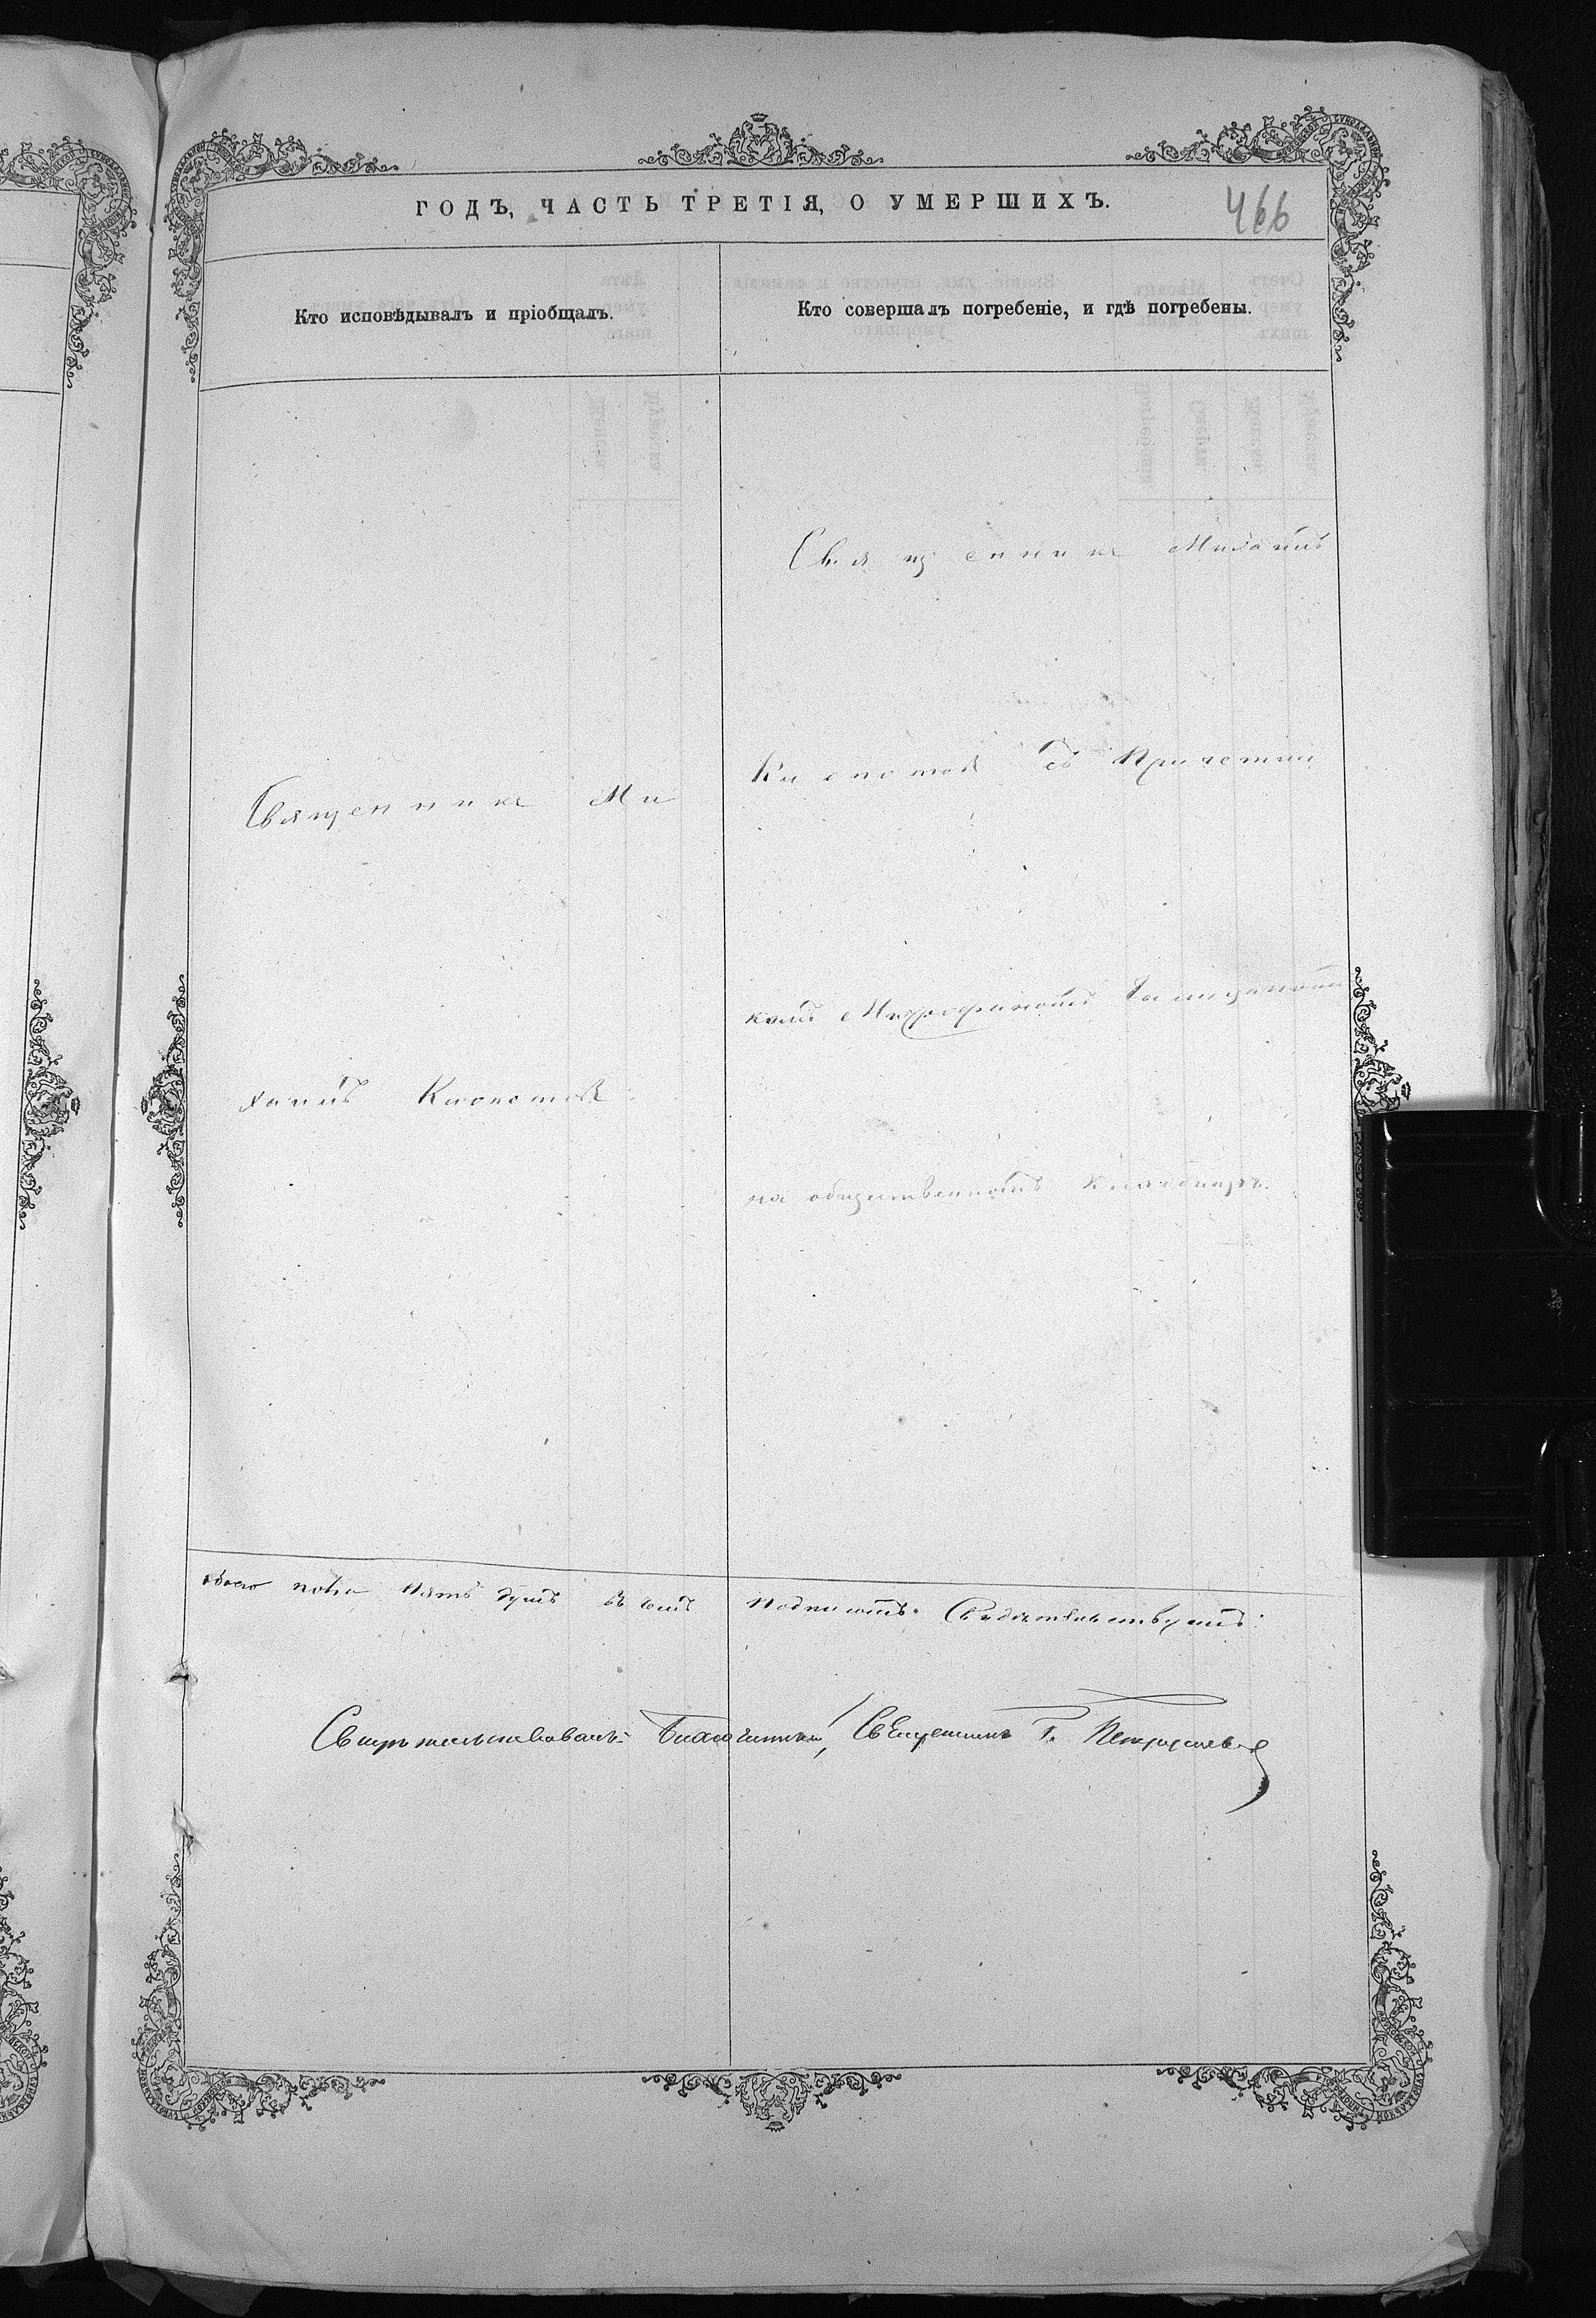 ГОДЪ, ЧАСТЬ ТРЕТІЯ, О УМЕРШИХЪ.
466
Кто исповѣдывалъ и пріобщалъ.
Кто совершалъ погребеніе, и гдѣ погребены.
Священникъ Ми
хаилъ
Священникъ Михаилъ
съ Причетни
комъ Митрофаномъ
на общественномъ кладбищѣ.
обоего пола пять душъ въ чемъ
подписомъ Свидѣтельствуемъ:
Свидѣтельствовалъ: Благочинный, Священникъ